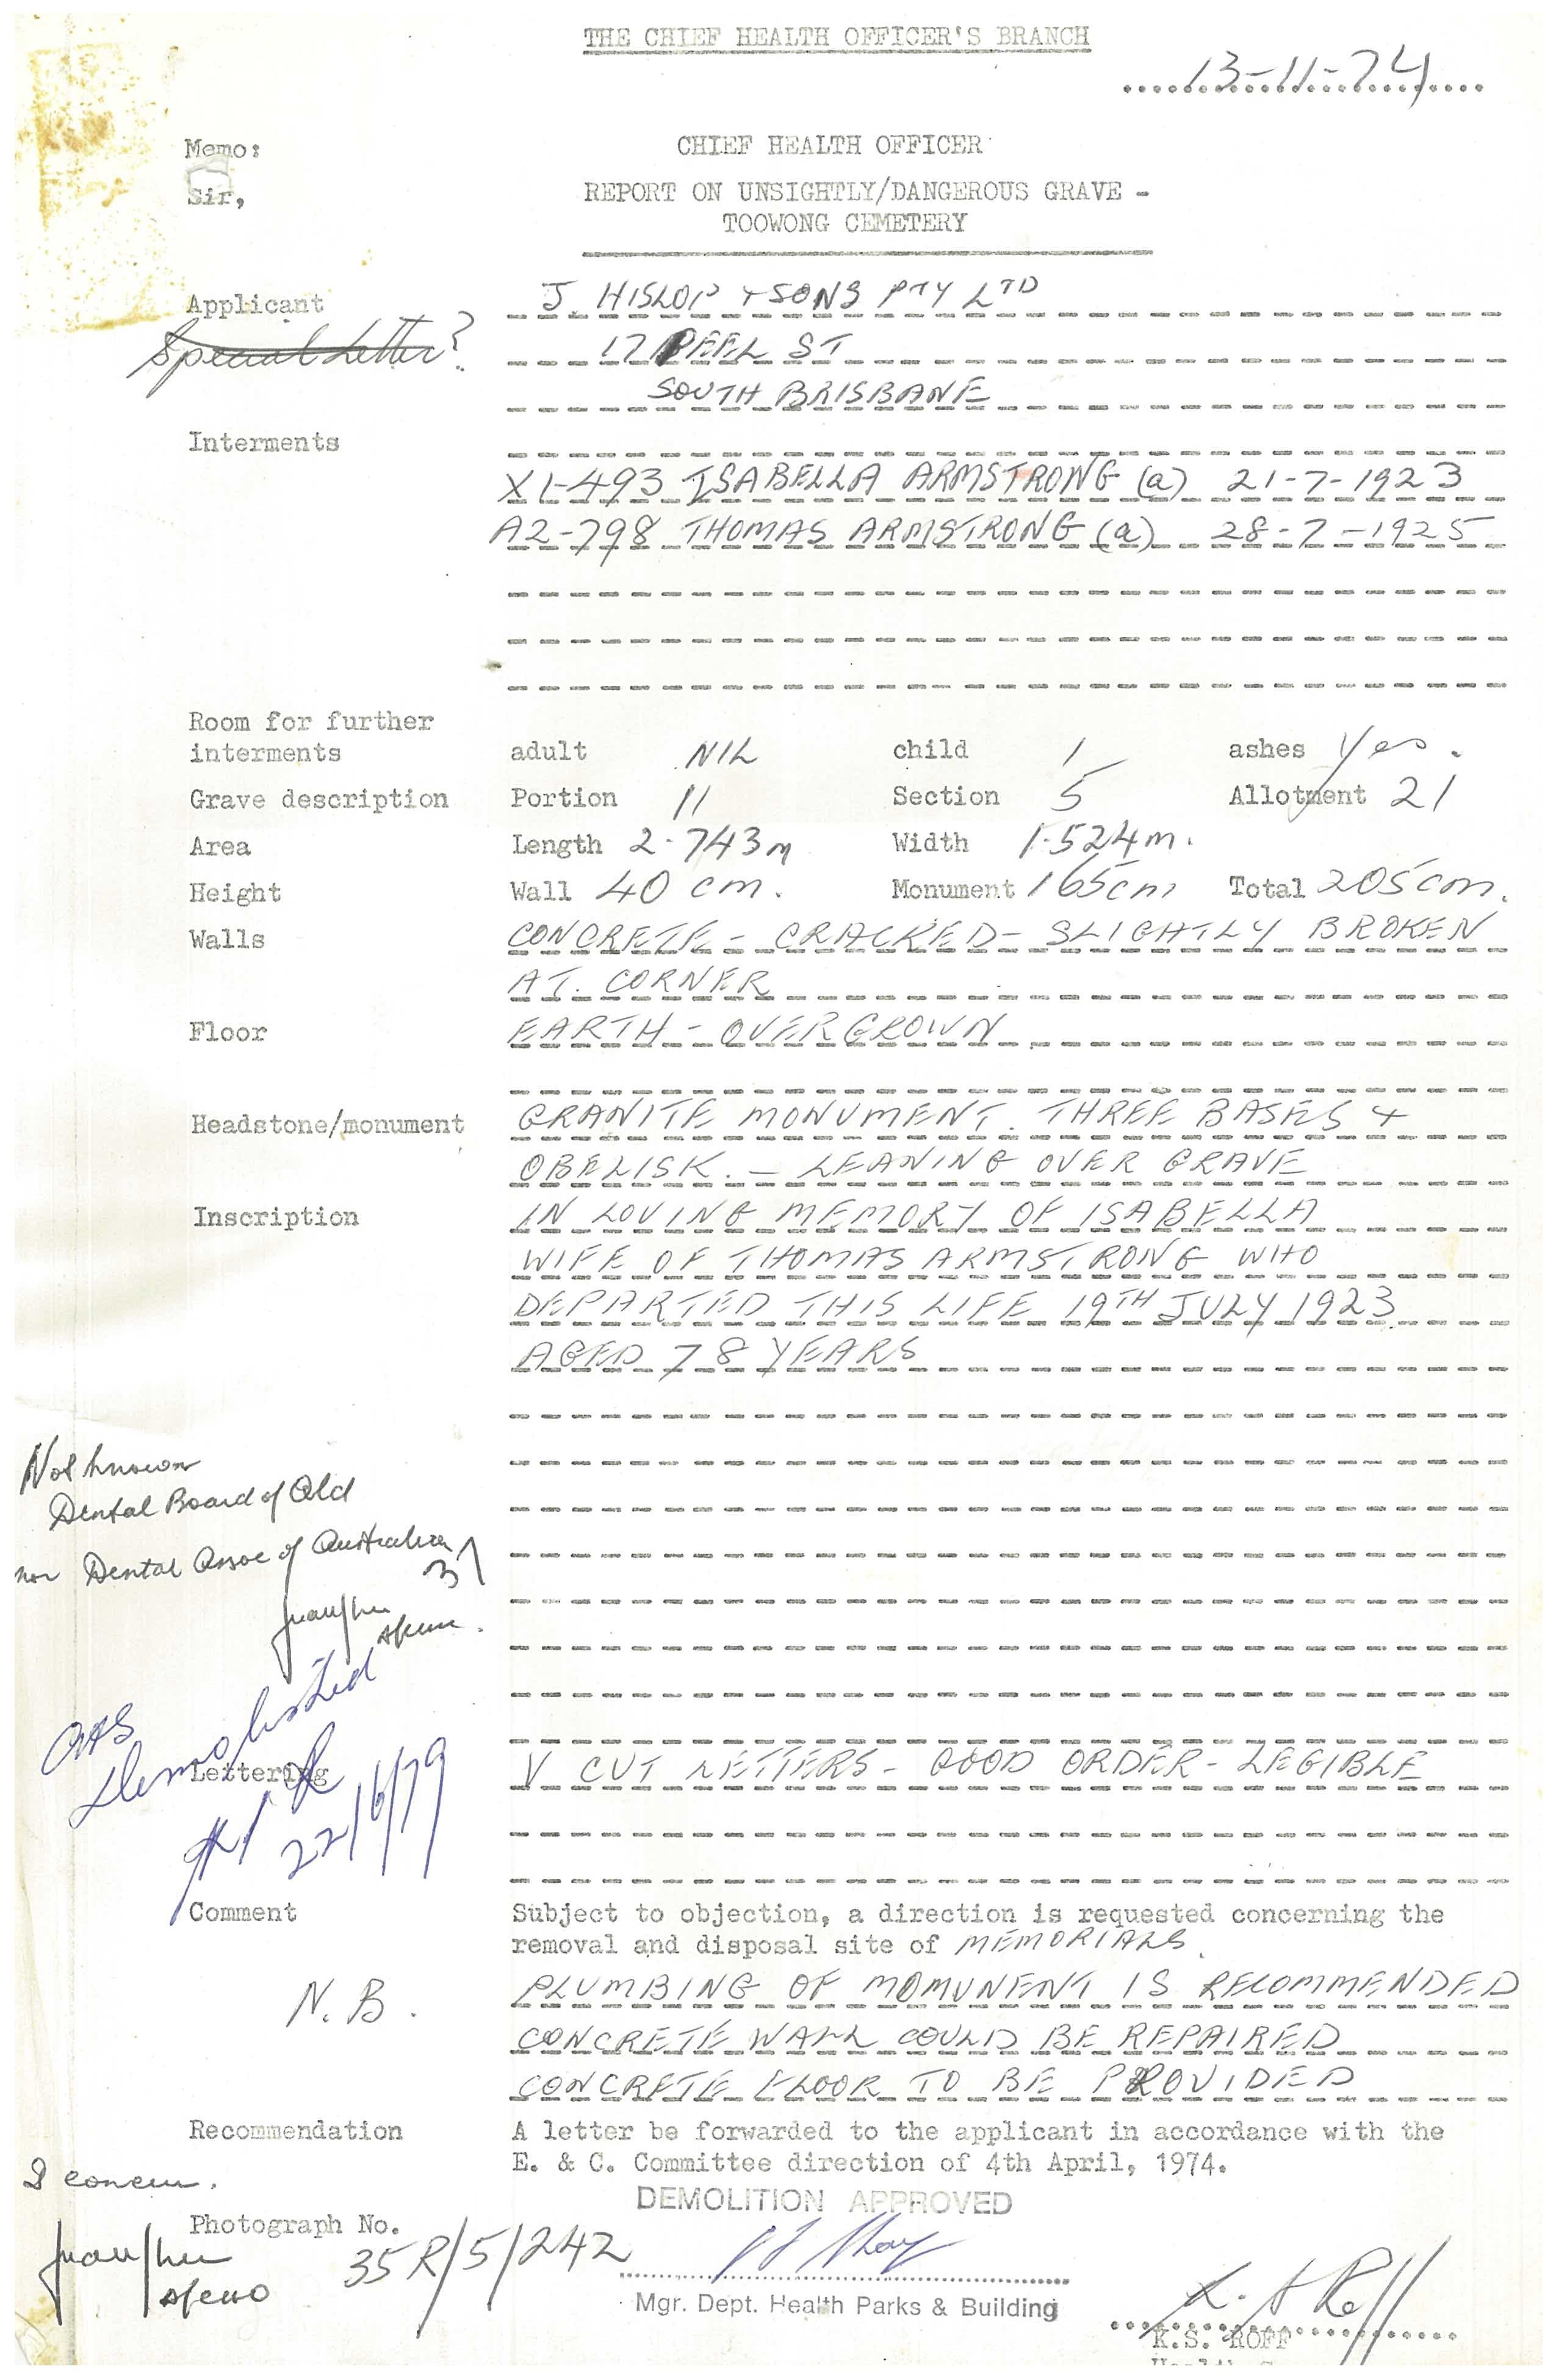 THE CHIEF HEALTH OFFICER'S BRANCH
13-11-74
Memo:
CHIEF HEALTH OFFICER
Sir,
REPORT ON UNSIGHTLY/DANGEROUS GRAVE -
TOOWONG CEMETERY
Applicant J. HISLOP + SONS PTY LTD
Special Letter?
17 PEEL ST
SOUTH BRISBANE
Interments
X1-493 ISABELLA ARMSTRONG (a) 21-7-1923
A2-798 THOMAS ARMSTRONG (a) 28-7-1925
Room for further
interments adult NIL child 1 ashes Yes.
Grave description Portion 11 Section 5 Allotment 21
Area Length 2.743m Width 1.524m.
Height Wall 40 cm. Monument 165cm Total 205cm.
Walls CONCRETE - CRACKED - SLIGHTLY BROKEN
AT. CORNER
Floor EARTH - OVERGROWN
Headstone/monument GRANITE MONUMENT. THREE BASES +
OBELISK. - LEANING OVER GRAVE
Inscription IN LOVING MEMORY OF ISABELLA
WIFE OF THOMAS ARMSTRONG WHO
DEPARTED THIS LIFE 19TH JULY 1923
AGED 78 YEARS
Not known
Dental Board of Qld
nor Dental Assoc of Australia
Demolished
22/6/79
Lettering V CUT LETTERS - GOOD ORDER - LEGIBLE
Comment Subject to objection, a direction is requested concerning the
removal and disposal site of MEMORIALS.
N.B. PLUMBING OF MOMUNENT IS RECOMMENDED
CONCRETE WALL COULD BE REPAIRED
CONCRETE FLOOR TO BE PROVIDED
Recommendation A letter be forwarded to the applicant in accordance with the
E. & C. Committee direction of 4th April, 1974.
I concur.
DEMOLITION APPROVED
Photograph No. 35R/5/242
Mgr. Dept. Health Parks & Building
K.S. ROFF